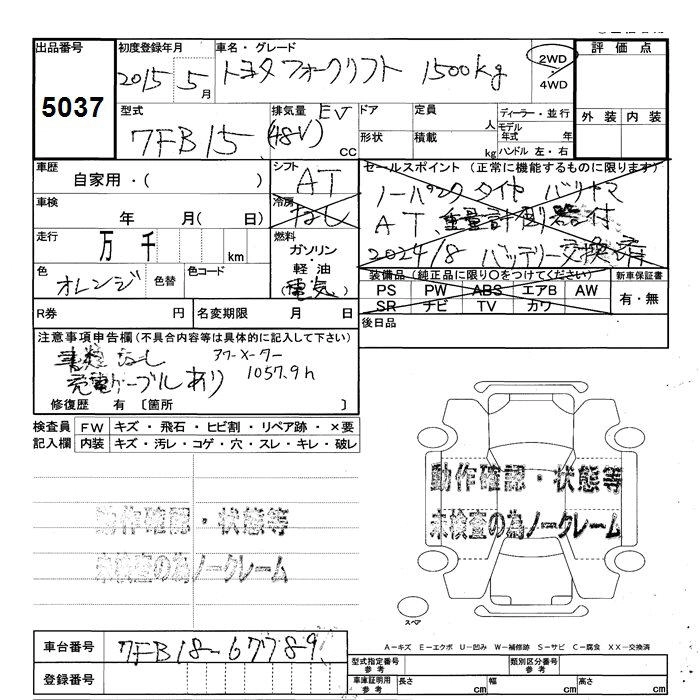 出品番号 5037
初度登録年月 2015 5月
車名・グレード トヨタフォークリフト 1500kg
2WD・4WD
評価点
外装 内装
型式 7FB15
排気量 EV (48V) cc
ドア 形状
定員 人
積載 kg
ディーラー・並行
モデル年式 年
ハンドル 左・右
車歴 自家用・( )
シフト AT
セールスポイント (正常に機能するものに限ります)
ノーパンクタイヤ バリヤマ
AT 重量計測器付
2024/8 バッテリー交換済
車検 年 月(日)
冷房 なし
走行 万 千 km
燃料 ガソリン・軽油 (電気)
色 オレンジ 色替 色コード
装備品 (純正品に限り○をつけてください)
新車保証書 有・無
PS PW ABS エアB AW
SR ナビ TV カワ
R券 円
名変期限 月 日
後日品
注意事項申告欄 (不具合内容等は具体的に記入して下さい)
書類なし アワーメーター
充電ケーブルあり 1057.9h
修復歴 有 〔箇所 〕
検査員記入欄
FW キズ・飛石・ヒビ割・リペア跡・×要
内装 キズ・汚レ・コゲ・穴・スレ・キレ・破レ
動作確認・状態等
未検査の為ノークレーム
動作確認・状態等
未検査の為ノークレーム
スペア
A=キズ E=エクボ U=凹み W=補修跡 S=サビ C=腐食 XX=交換済
車台番号 7FB18-67789
登録番号
型式指定番号 参考
類別区分番号 参考
車庫証明用 参考
長さ cm 幅 cm 高さ cm